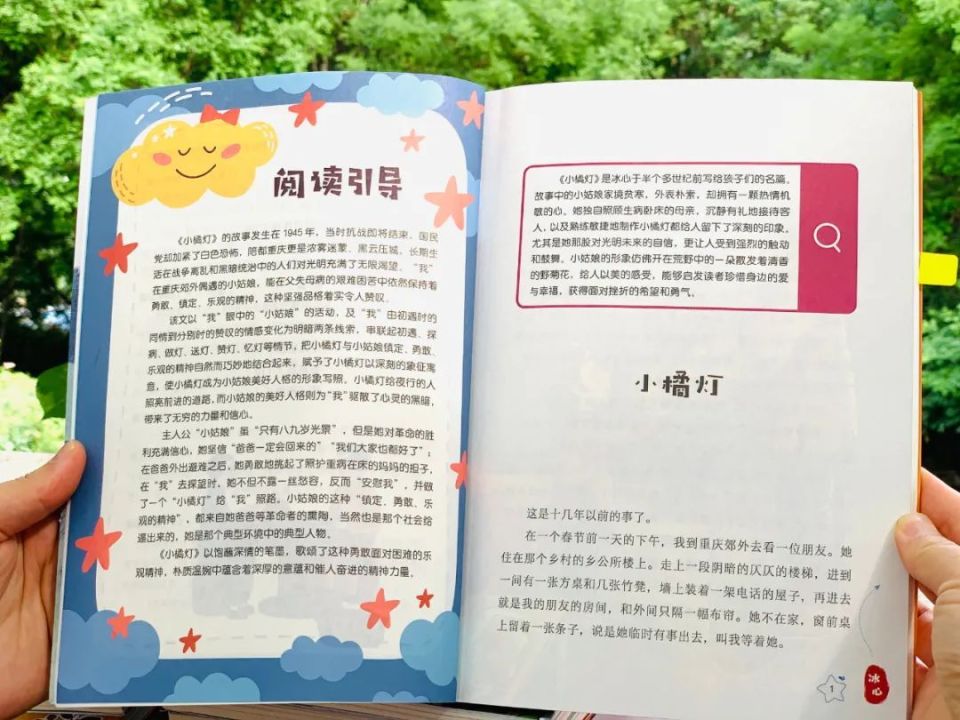 阅读引导
《小橘灯》的故事发生在 1945 年，当时抗战即将结束，国民
党却加紧了白色恐怖，陪都重庆更是浓雾迷蒙，黑云压城，长期生
活在战争离乱和黑暗统治中的人们对光明充满了无限渴望。“我”
在重庆郊外偶遇的小姑娘，能在父失母病的艰难困苦中依然保持着
勇敢、镇定、乐观的精神，这种坚强品格着实令人赞叹。
该文以“我”眼中的“小姑娘”的活动，及“我”由初遇时的
同情到分别时的赞叹的情感变化为明暗两条线索，串联起初遇、探
病、做灯、送灯、赞灯、忆灯等情节，把小橘灯与小姑娘镇定、勇敢、
乐观的精神自然而巧妙地结合起来，赋予了小橘灯以深刻的象征寓
意，使小橘灯成为小姑娘美好人格的形象写照。小橘灯给夜行的人
照亮前进的道路，而小姑娘的美好人格则为“我”驱散了心灵的黑暗，
带来了无穷的力量和信心。
主人公“小姑娘”虽“只有八九岁光景”，但是她对革命的胜
利充满信心，她坚信“爸爸一定会回来的”“我们大家也都好了”；
在爸爸外出避难之后，她勇敢地挑起了照护重病在床的妈妈的担子，
在“我”去探望时，她不但不露一丝愁容，反而“安慰我”，并做
了一个“小橘灯”给“我”照路。小姑娘的这种“镇定、勇敢、乐
观的精神”，都来自她爸爸等革命者的熏陶，当然也是那个社会给
逼出来的，她是那个典型环境中的典型人物。
《小橘灯》以饱蘸深情的笔墨，歌颂了这种勇敢面对困难的乐
观精神，朴质温婉中蕴含着深厚的意蕴和催人奋进的精神力量。
《小橘灯》是冰心于半个多世纪前写给孩子们的名篇。
故事中的小姑娘家境贫寒，外表朴素，却拥有一颗热情机
敏的心。她独自照顾生病卧床的母亲，沉静有礼地接待客
人，以及熟练敏捷地制作小橘灯都给人留下了深刻的印象。
尤其是她那股对光明未来的自信，更让人受到强烈的触动
和鼓舞。小姑娘的形象仿佛开在荒野中的一朵散发着清香
的野菊花，给人以美的感受，能够启发读者珍惜身边的爱
与幸福，获得面对挫折的希望和勇气。
小橘灯
这是十几年以前的事了。
在一个春节前一天的下午，我到重庆郊外去看一位朋友。她
住在那个乡村的乡公所楼上。走上一段阴暗的仄仄的楼梯，进到
一间有一张方桌和几张竹凳，墙上装着一架电话的屋子，再进去
就是我的朋友的房间，和外间只隔一幅布帘。她不在家，窗前桌
上留着一张条子，说是她临时有事出去，叫我等着她。
1
冰心